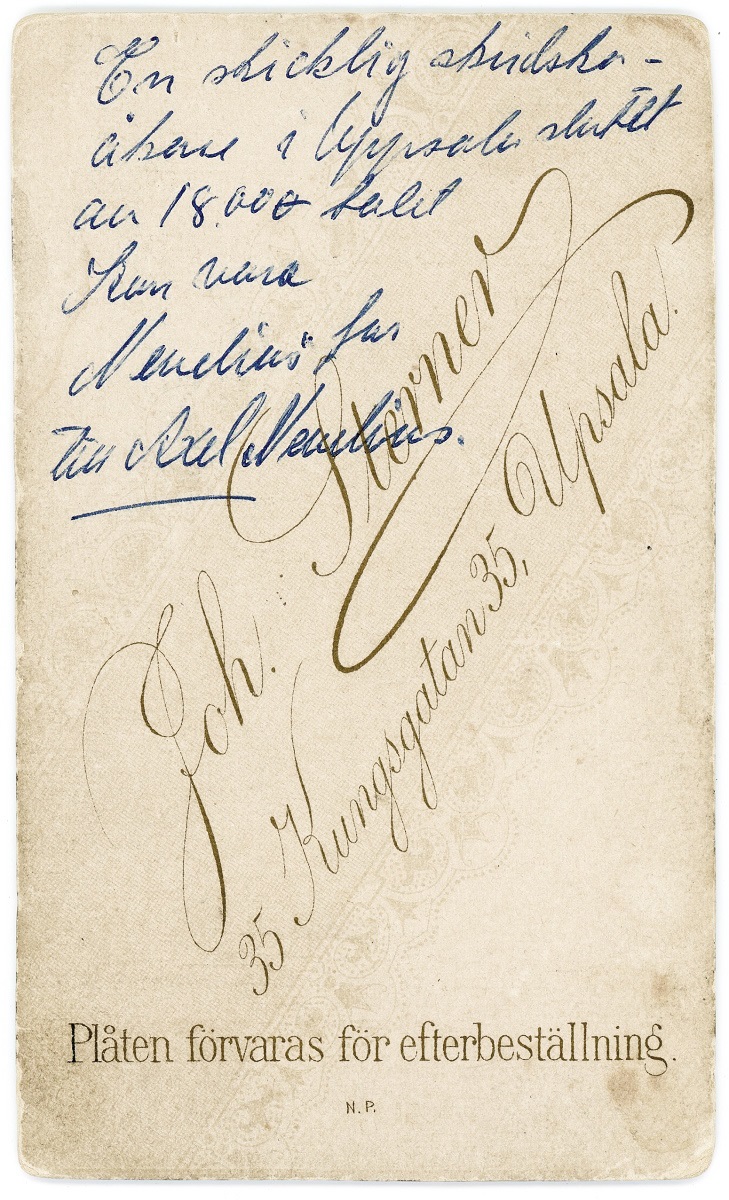 En skicklig skridsko-
åkare i Uppsala slutet
av 18.000 talet
Kan vara
Nenelius far
till Axel Nenelius.
Joh. Sterner
35 Kungsgatan 35, Upsala.
Plåten förvaras för efterbeställning.
N.P.